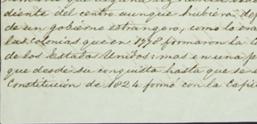 diente del centro aunque hubiera de
de un gobierno estrangero, como lo era
las colonias que en 1778 formaron la
de los Estados Unidos: mas en una
que desde su conquista hasta que se
Constitucion de 1824 formó con la Capi